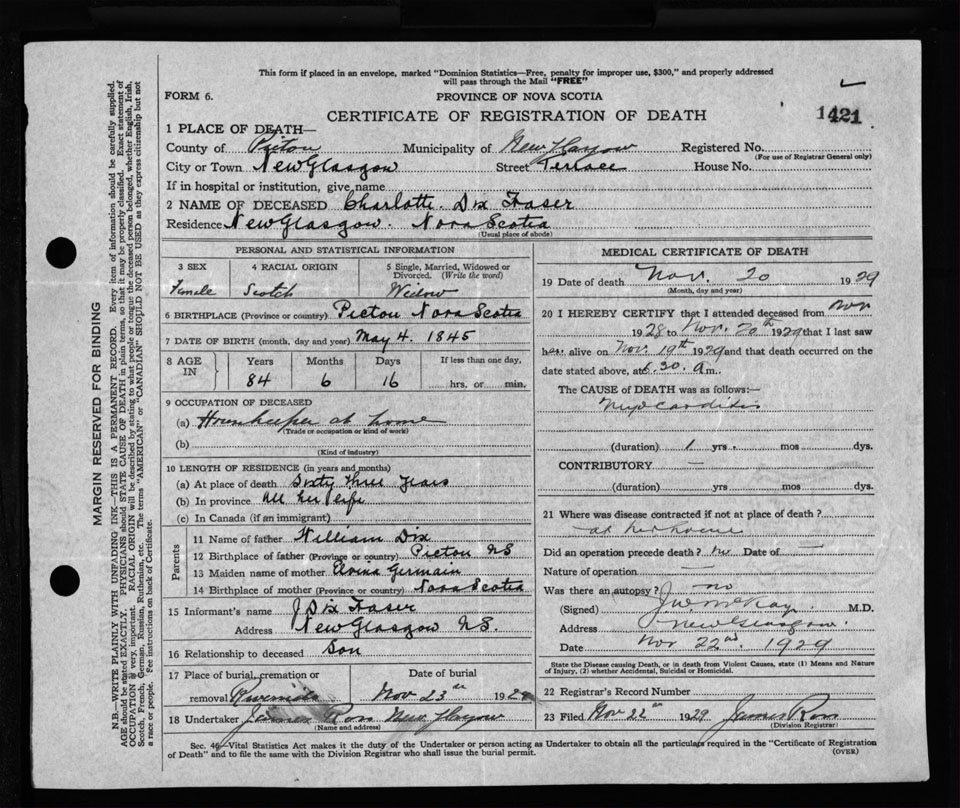 This form if placed in an envelope, marked "Dominion Statistics—Free, penalty for improper use, $300," and properly addressed
will pass through the Mail "FREE"
FORM 6.
PROVINCE OF NOVA SCOTIA
1421
CERTIFICATE OF REGISTRATION OF DEATH
1 PLACE OF DEATH—
County of Pictou Municipality of New Glasgow Registered No.
(For use of Registrar General only)
City or Town New Glasgow Street Terrace House No.
If in hospital or institution, give name
2 NAME OF DECEASED Charlotte Dix Fraser
Residence New Glasgow. Nova Scotia
(Usual place of abode)
PERSONAL AND STATISTICAL INFORMATION
3 SEX 4 RACIAL ORIGIN 5 Single, Married, Widowed or Divorced. (Write the word)
Female Scotch Widow
6 BIRTHPLACE (Province or country) Pictou Nova Scotia
7 DATE OF BIRTH (month, day and year) May 4. 1845
8 AGE IN Years Months Days If less than one day,
84 6 16 hrs. or min.
9 OCCUPATION OF DECEASED
(a) Housekeeper at home
(Trade or occupation or kind of work)
(b)
(Kind of industry)
10 LENGTH OF RESIDENCE (in years and months)
(a) At place of death Sixty three Years
(b) In province All her life
(c) In Canada (if an immigrant)
Parents
11 Name of father William Dix
12 Birthplace of father (Province or country) Pictou NS
13 Maiden name of mother Elvina Germain
14 Birthplace of mother (Province or country) Nova Scotia
15 Informant's name J Dix Fraser
Address New Glasgow N.S.
16 Relationship to deceased Son
17 Place of burial, cremation or Date of burial
removal Riverside Nov 23rd 1929
18 Undertaker James Ross New Glasgow
(Name and address)
MEDICAL CERTIFICATE OF DEATH
19 Date of death Nov. 20 1929
(Month, day and year)
20 I HEREBY CERTIFY that I attended deceased from Nov
1928 to Nov. 20th 1929 that I last saw
her alive on Nov. 19th 1929 and that death occurred on
date stated above, at 6.30. a m.
The CAUSE OF DEATH was as follows:—
Myocarditis
(duration) 1 yrs. mos dys.
CONTRIBUTORY —
(duration) yrs. mos dys.
21 Where was disease contracted if not at place of death?
at her home
Did an operation precede death? no Date of —
Nature of operation —
Was there an autopsy? no
(Signed) J W McKay M.D.
Address New Glasgow
Date Nov 22nd 1929
State the Disease causing Death, or in death from Violent Causes, state (1) Means and Nature
of Injury, (2) whether Accidental, Suicidal or Homicidal.
22 Registrar's Record Number
23 Filed Nov 22nd 1929 James Ross
(Division Registrar)
Sec. 46—Vital Statistics Act makes it the duty of the Undertaker or person acting as Undertaker to obtain all the particulars required in the "Certificate of Registration
of Death" and to file the same with the Division Registrar who shall issue the burial permit.
(OVER)
MARGIN RESERVED FOR BINDING
N.B.—WRITE PLAINLY WITH UNFADING INK—THIS IS A PERMANENT RECORD. Every item of information should be carefully supplied.
AGE should be stated EXACTLY. PHYSICIANS should STATE CAUSE OF DEATH in plain terms, so that it may be properly classified. Exact statement of
OCCUPATION is very important. RACIAL ORIGIN will be described by stating to what people or tongue the deceased person belonged, whether English, Irish,
Scotch, French, German, Russian, Ruthenian, etc. The terms "AMERICAN" or "CANADIAN" SHOULD NOT BE USED as they express citizenship but not
a race or people. See instructions on back of Certificate.